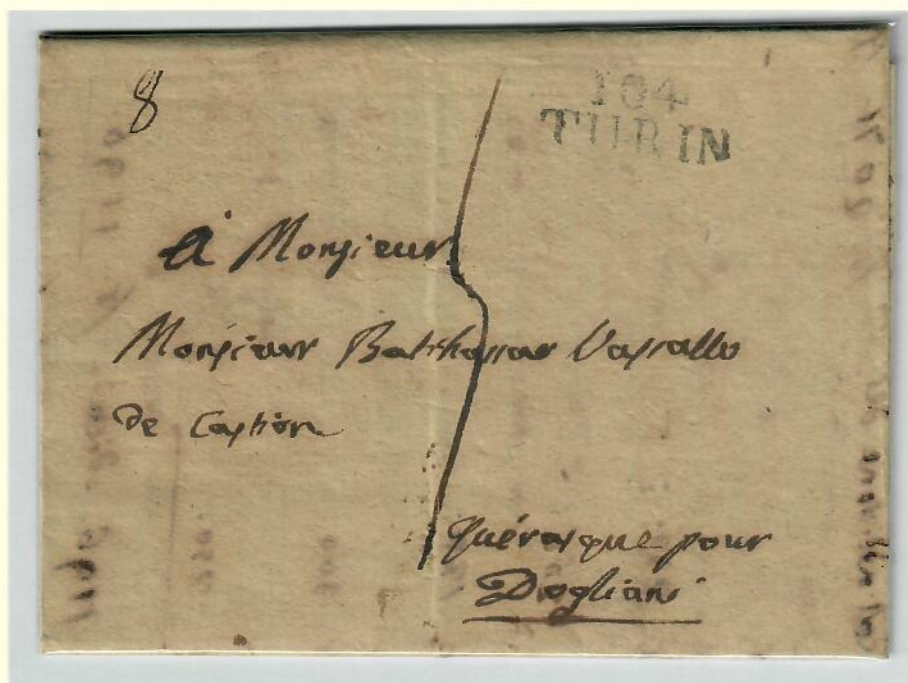 8
104
TURIN
à Monsieur
Monsieur Balthassar Vassallo
de Castion
Quérasque pour
Diogliani